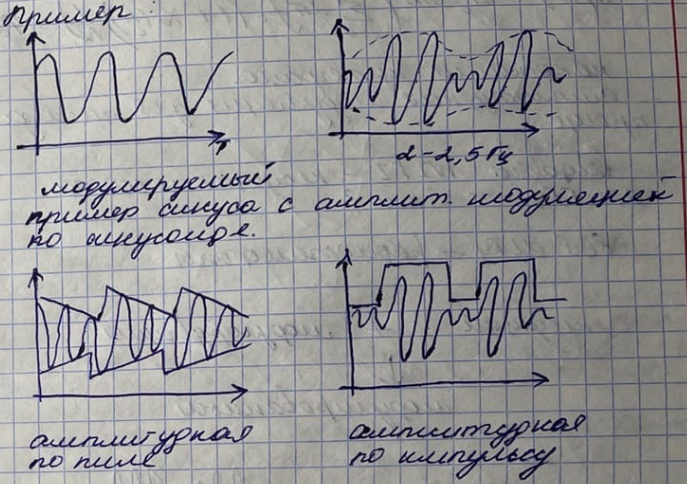 Пример:
2-2,5 Гц
модулируемый
пример синуса с амплит. модуляцией
по синусоиде.
амплитудная
по пиле
амплитудная
по импульсу